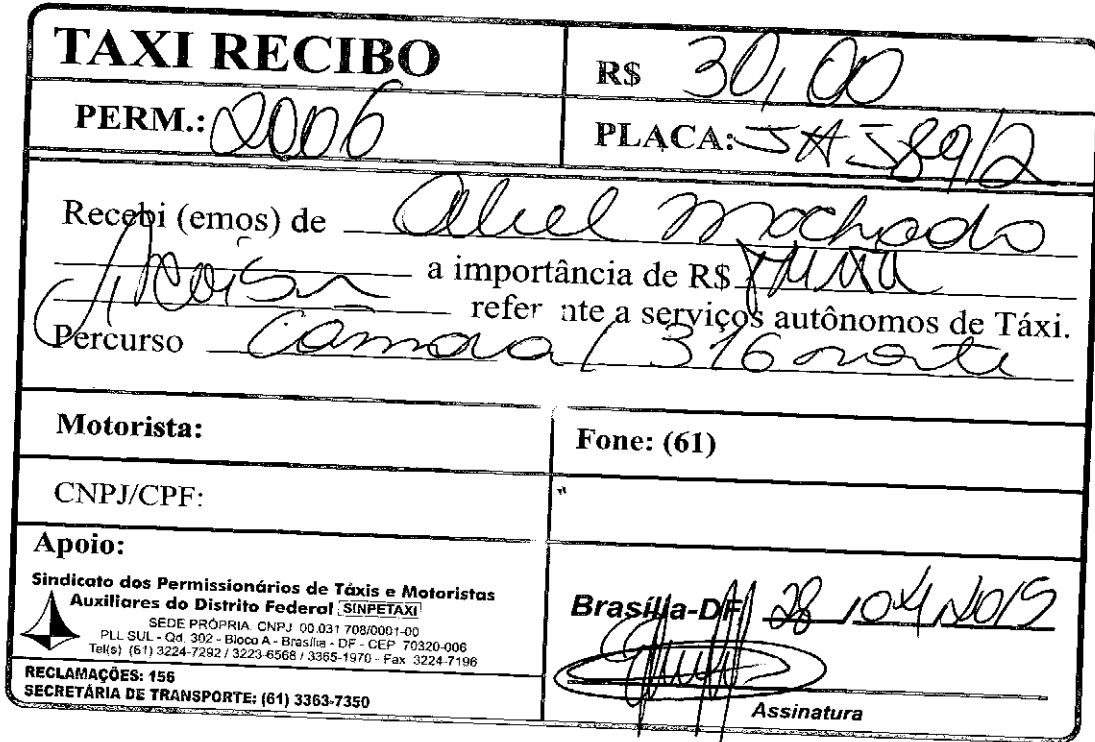 TAXI RECIBO
R$ 30,00
PERM.: 2006
PLACA: JAJ8912
Recebi (emos) de Abel Machado
a importância de R$ trinta
refer nte a serviços autônomos de Táxi.
Percurso Câmara / 316 norte
Motorista:
Fone: (61)
CNPJ/CPF:
Apoio:
Sindicato dos Permissionários de Táxis e Motoristas
Auxiliares do Distrito Federal SINPETAXI
SEDE PRÓPRIA CNPJ 00.031 708/0001-00
PLL SUL - Qd. 302 - Bloco A - Brasília - DF - CEP 70320-006
Tel(s) (61) 3224-7292 / 3223-6568 / 3365-1970 - Fax 3224-7196
RECLAMAÇÕES: 156
SECRETÁRIA DE TRANSPORTE: (61) 3363-7350
Brasília-DF 28 / 04 / 2015
Assinatura